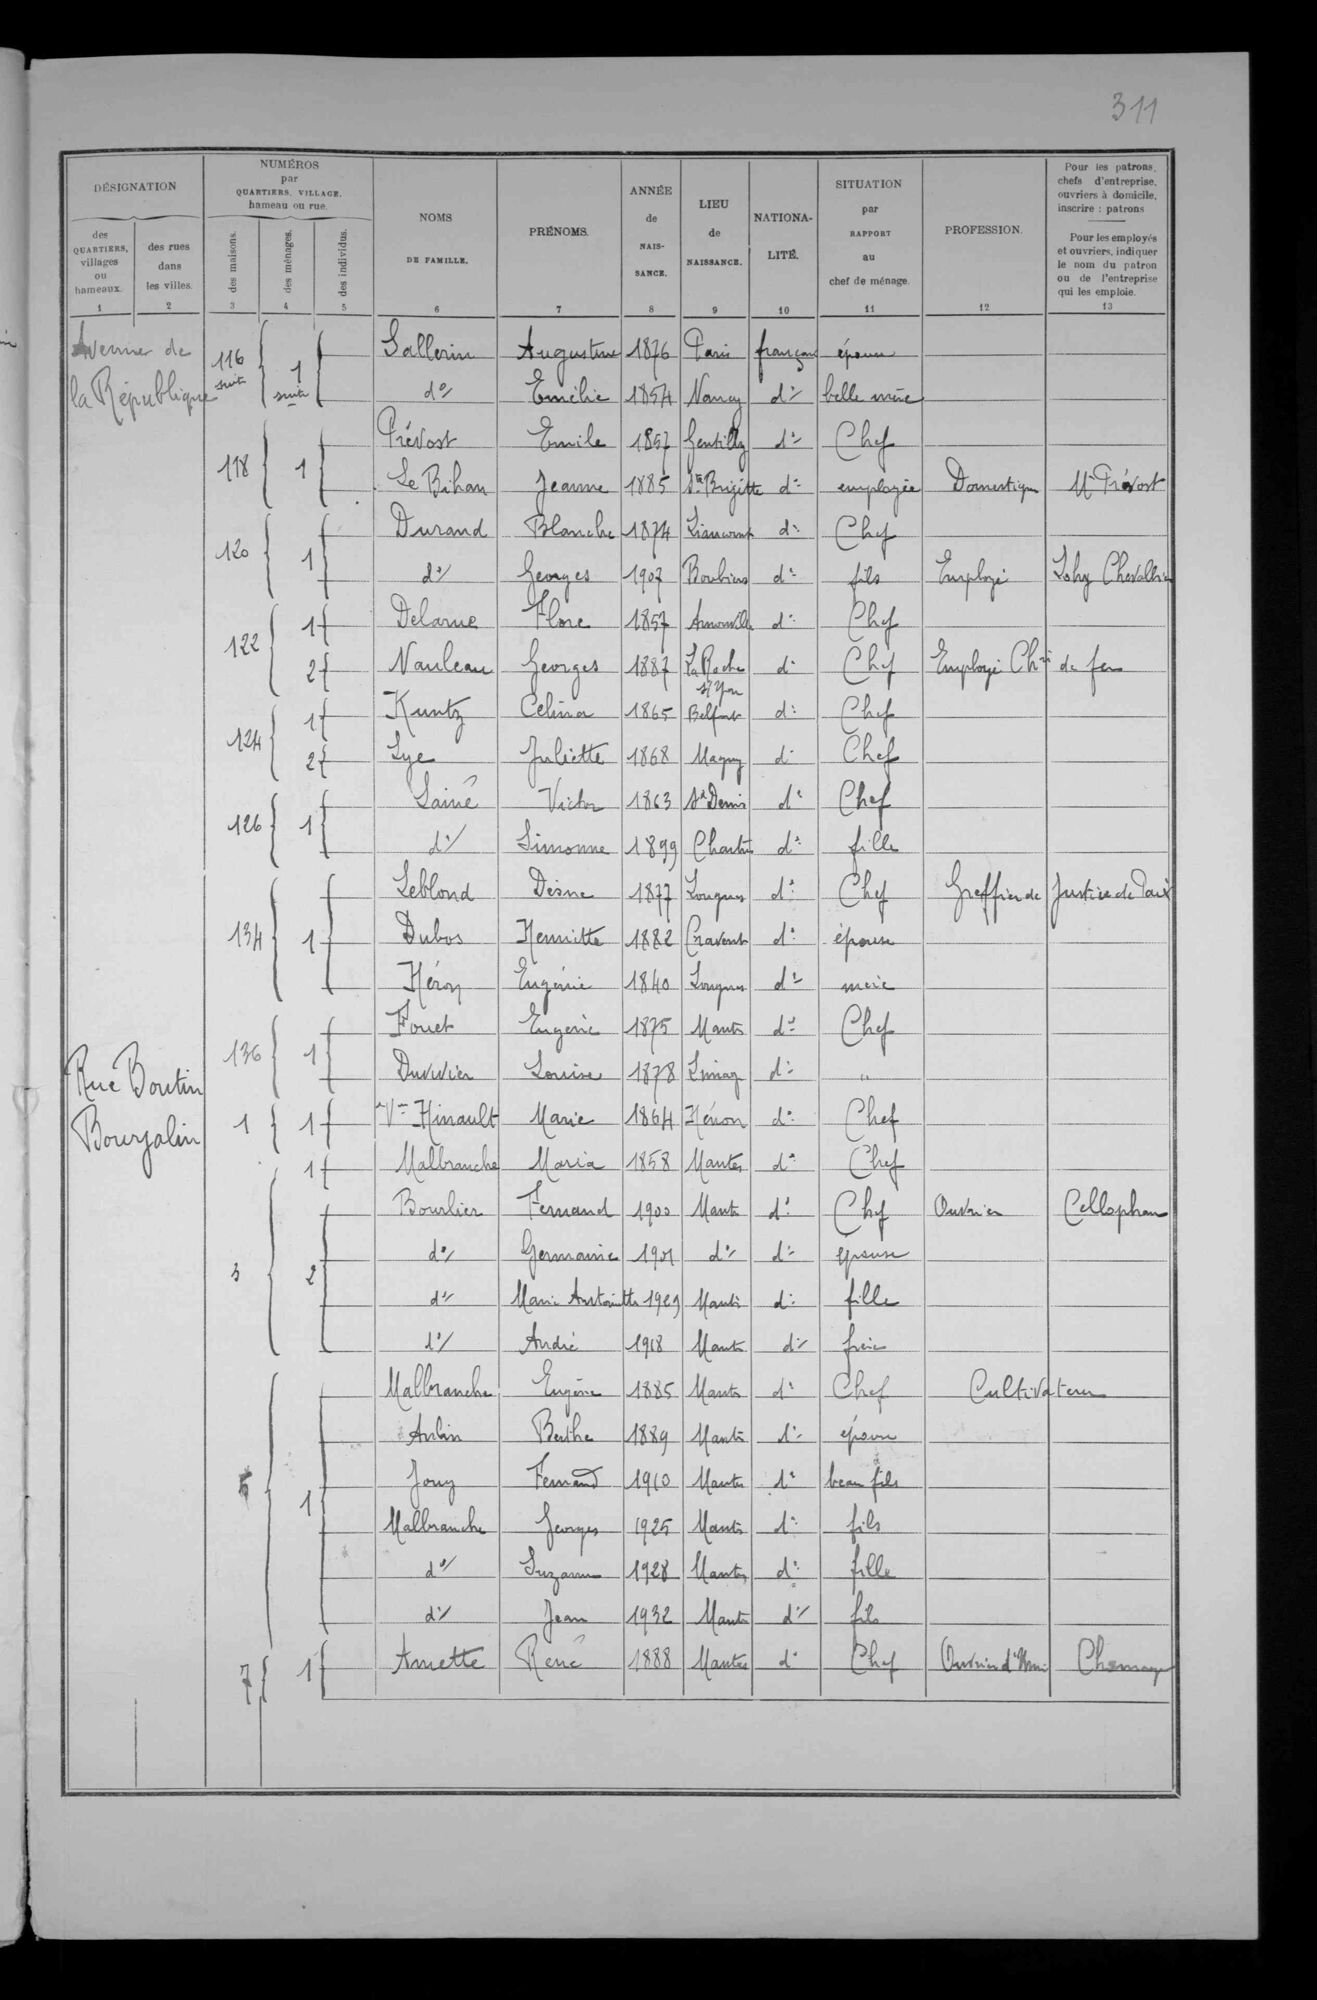 311
DÉSIGNATION
des QUARTIERS, villages ou hameaux.
des rues dans les villes.
NUMÉROS par QUARTIERS, VILLAGE, hameau ou rue.
des maisons.
des ménages.
des individus.
NOMS DE FAMILLE.
PRÉNOMS.
ANNÉE de NAISSANCE.
LIEU de NAISSANCE.
NATIONALITÉ.
SITUATION par RAPPORT au chef de ménage.
PROFESSION.
Pour les patrons, chefs d'entreprise, ouvriers à domicile, inscrire : patrons
Pour les employés et ouvriers, indiquer le nom du patron ou de l'entreprise qui les emploie.
1 2 3 4 5 6 7 8 9 10 11 12 13
Avenue de la République
116 suite 1 suite Sallerin Augustine 1876 Paris français épouse
do Emélie 1854 Nancy do belle mère
118 1 Prévost Emile 1857 Gentilly do Chef
Le Bihan Jeanne 1885 Ste Brigitte do employée Domestique Mr Prévost
120 1 Durand Blanche 1874 Liancourt do Chef
do Georges 1907 Boubiers do fils Employé Chevallier
122 1 Delarue Flore 1857 Arnouville do Chef
2 Nauleau Georges 1887 La Roche s/ Yon do Chef Employé Ch de fer
124 1 Kuntz Celina 1865 Belfort do Chef
2 Lye Juliette 1868 Magny do Chef
126 1 Lainé Victor 1863 St Denis do Chef
do Simonne 1899 Chartres do fille
134 1 Leblond Désire 1877 Longnes do Chef Greffier de Justice de Paix
Dubos Henriette 1882 Cravent do épouse
Héron Eugénie 1840 Longnes do mère
136 1 Fouet Eugénie 1875 Mantes do Chef
Duvivier Louise 1878 Limay do "
Rue Boutin Bourjalin
1 1 Vve Hinault Marie 1864 Hénon do Chef
3 1 Malbranche Maria 1858 Mantes do Chef
2 Bourlier Fernand 1900 Mantes do Chef Ouvrier Cellophane
do Germaine 1901 do do epouse
do Marie Antoinette 1929 Mantes do fille
do André 1918 Mantes do frère
5 1 Malbranche Eugène 1885 Mantes do Chef Cultivateur
Aubin Berthe 1889 Mantes do épouse
Jouy Fernand 1910 Mantes do beau fils
Malbranche Georges 1925 Mantes do fils
do Suzanne 1928 Mantes do fille
do Jean 1932 Mantes do fils
7 1 Amette René 1888 Mantes do Chef Ouvrier d'Usine Chomage